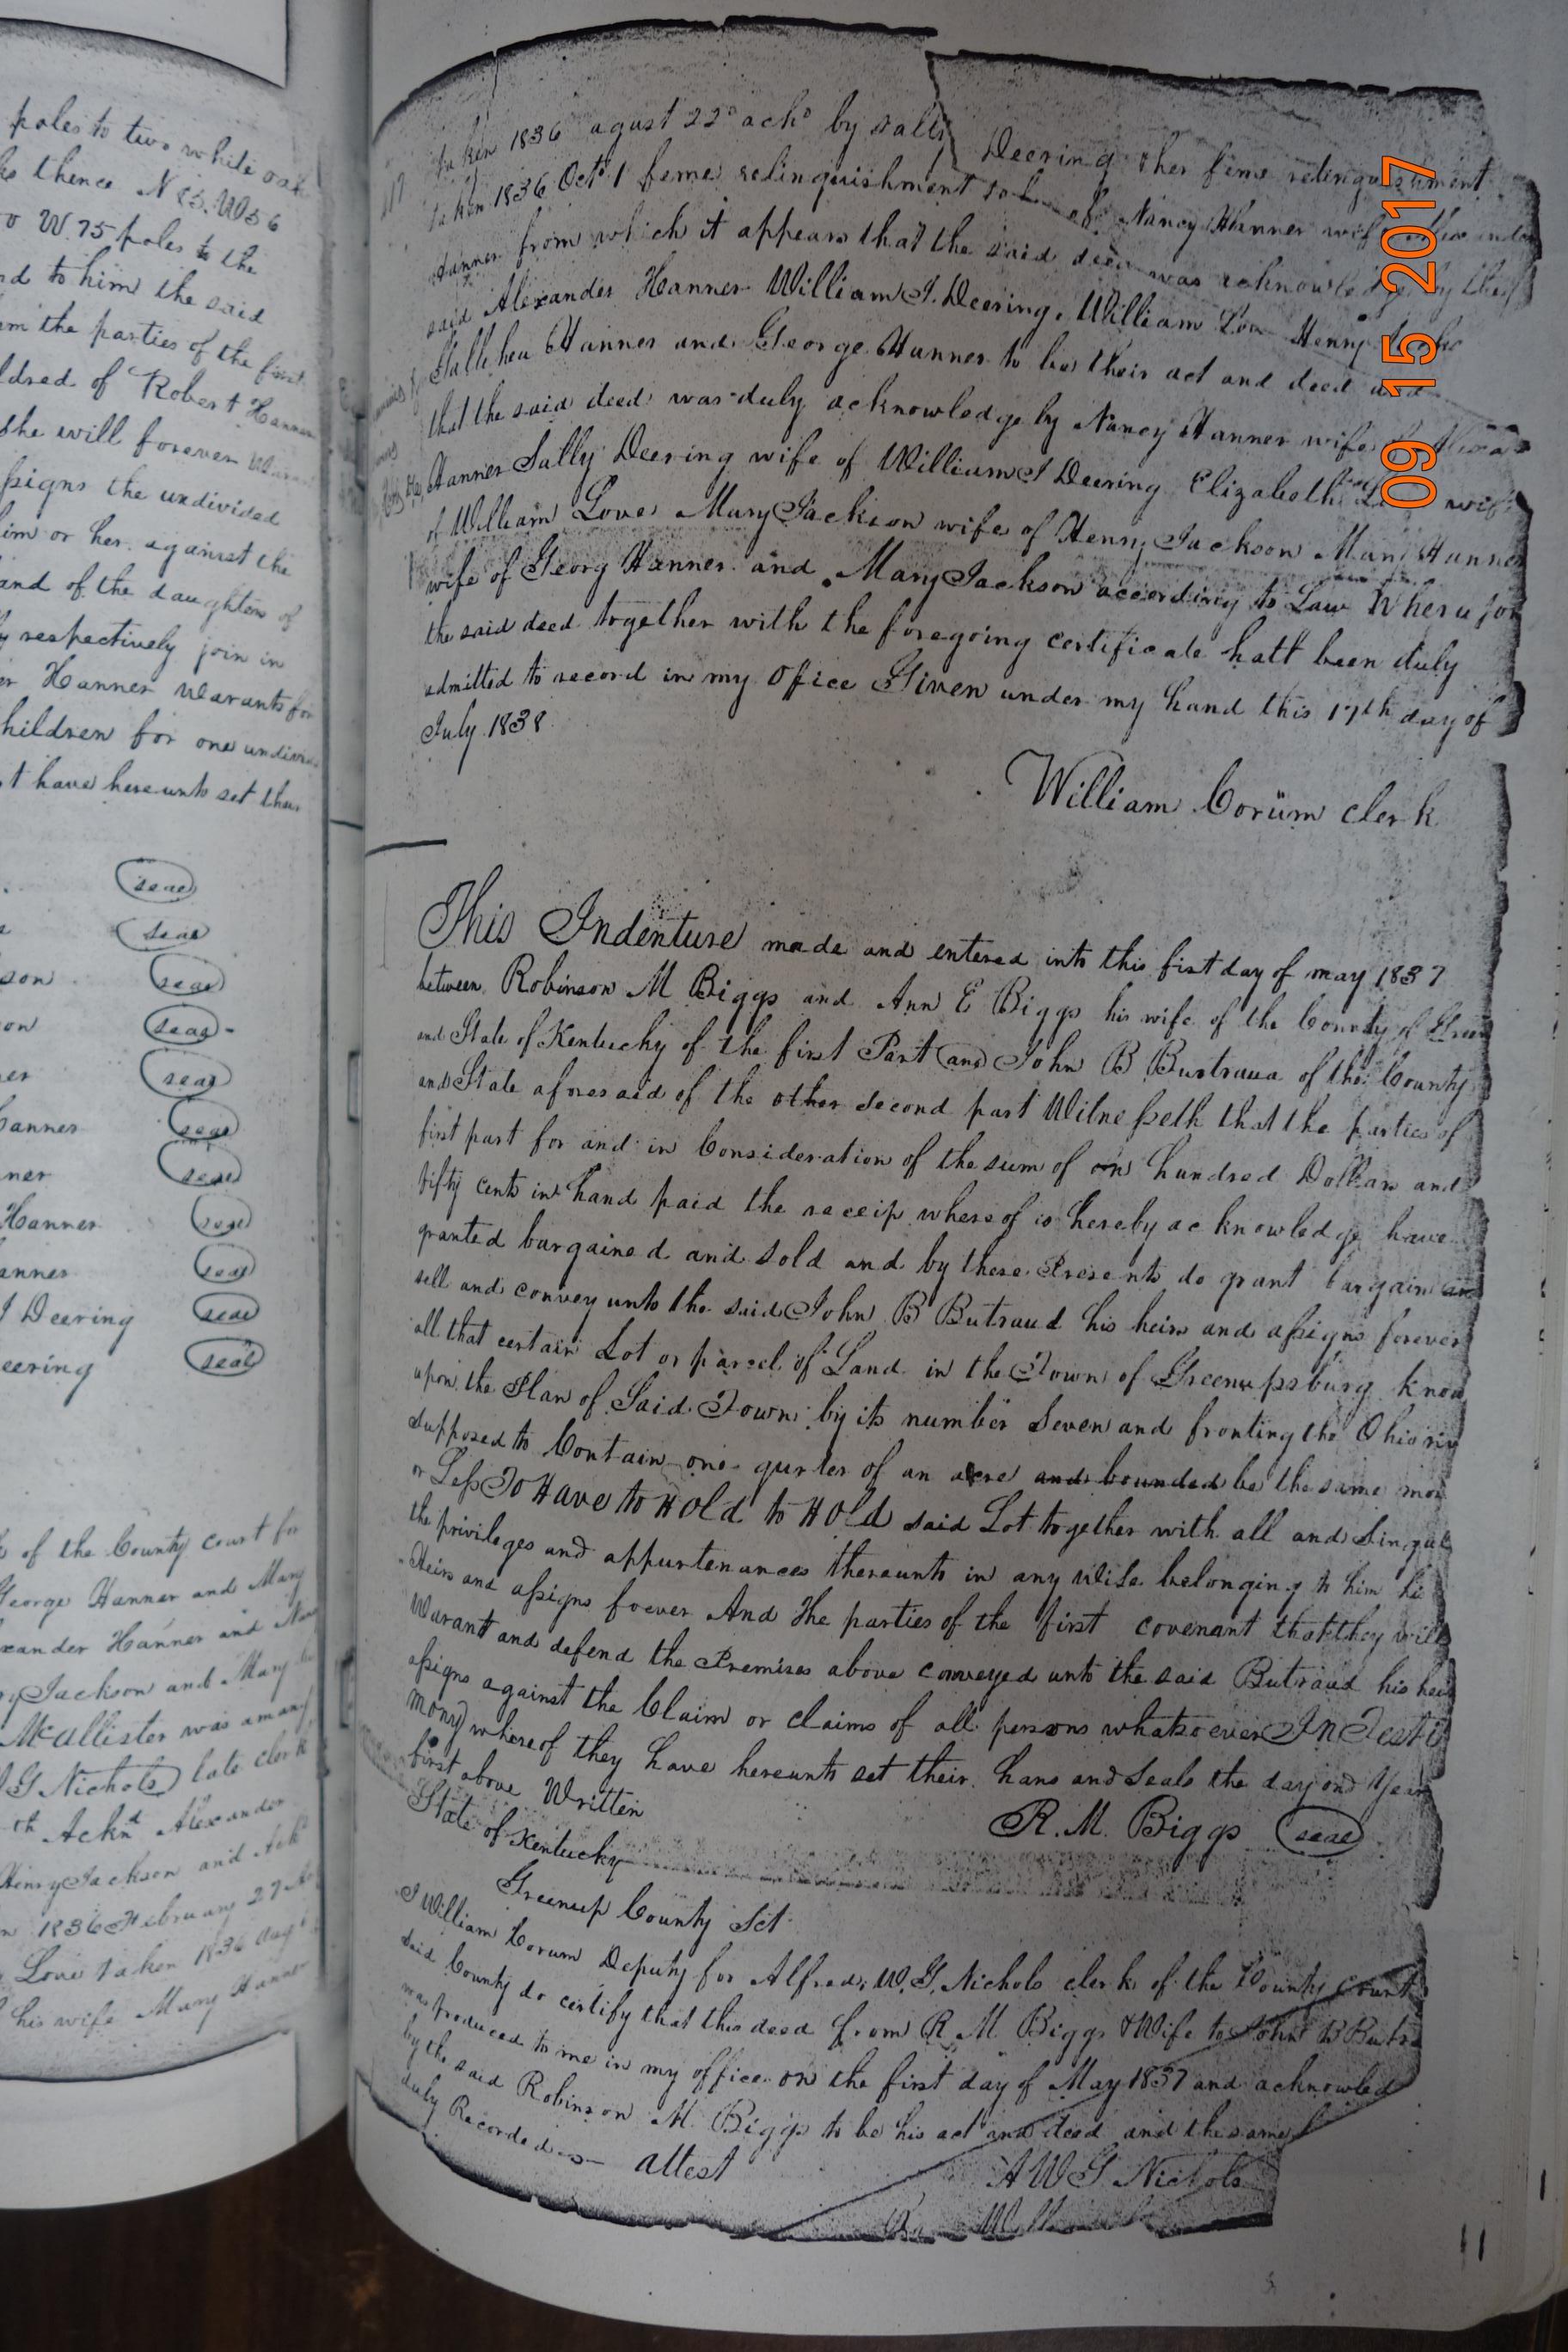 poles to two white oak
thence N 83. W 56
W. 75 poles to the
to him the said
the parties of the first
of Robert Hanner
she will forever
assigns the undivided
him or her against the
and of the daughters of
respectively join in
Hanner Warants for
hildren for one
t have hereunto set their
seal
seal
son seal
on seal
er seal
anner seal
ner seal
Hanner seal
anner seal
J Deering seal
eering seal
of the County Court for
George Hanner and Mary
xander Hanner and
Jackson and Mary
McAllister was
G Nichols late clerk
th Acknd Alexander
Henry Jackson and
1836 February 27
Love taken 1836
his wife Mary Hanner
taken 1836 agust 22d ackd by Sally Deering & her feme relinguishment
taken 1836 Oct 1 feme relinquishment of Nancy Hanner wife
Hanner from which it appears that the said deed was acknowledge by the
said Alexander Hanner William J. Deering. William Love Henry
Hanner and George Hanner to be their act and deed and
that the said deed was duly acknowledge by Nancy Hanner wife
Hanner Sally Deering wife of William J Deering Elizabeth wife
of William Love Mary Jackson wife of Henry Jackson Mary Hanner
wife of Georg Hanner and Mary Jackson according to Law
the said deed together with the foregoing certificate hatt been duly
admitted to record in my Office Given under my hand this 17th day of
July 1838
William Corum clerk
This Indenture made and entered into this first day of may 1837
between Robinson M Biggs and Ann E Biggs his wife of the County of
and State of Kentucky of the first Part and John B Burtraua of the County
and State aforesaid of the other second part Witnesseth that the parties of
first part for and in Consideration of the sum of on hundred Dollars and
fifty cents in hand paid the receip whereof is hereby acknowledge have
granted bargained and sold and by these Presents do grant bargain
sell and convey unto the said John B Butraud his heirs and assigns forever
all that certain Lot or parcel of Land in the Town of Greenupsburg know
upon the Plan of Said Town by its number Seven and fronting the Ohio
supposed to Contain one qurter of an acre and bounded be the same
or Less To Have to Hold to Hold said Lot together with all and
the privileges and appurtenances thereunto in any wise belonging to him
Heirs and assigns foever And The parties of the first covenant that they will
Warant and defend the Premises above conveyed unto the said Butraud his
assigns against the Claim or claims of all persons whatsoever In Testi
mony whereof they have hereunto set their hans and Seals the day and Year
first above Written
R. M. Biggs seal
State of Kentucky
Greenup County Sct
I William Corum Deputy for Alfred W. G. Nichols clerk of the County Court
said County do certify that this deed from R M Biggs & Wife to John B
was produced to me in my office on the first day of May 1837 and acknowled
by the said Robinson M Biggs to be his act and deed and the same
duly Recorded attest
A W G Nichols
09 15 2017
11